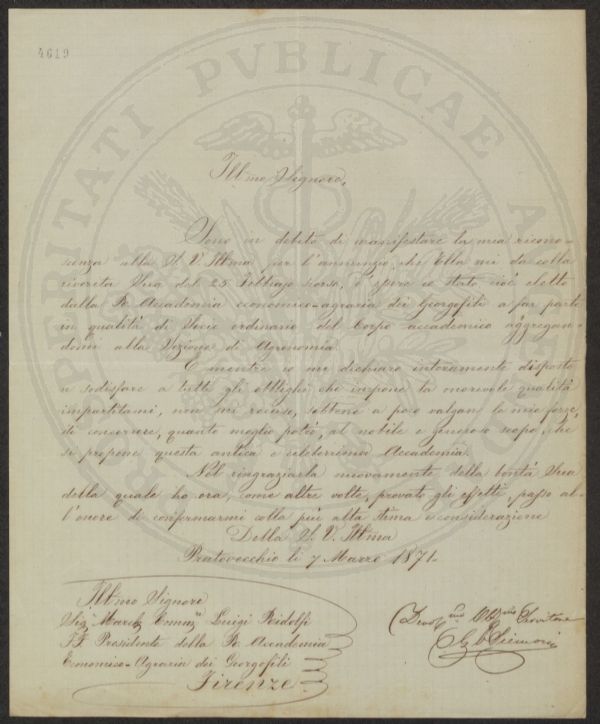 4619
PROSPERITATI PVBLICAE AVGENDAE
Ill.mo Signore,
Sono in debito di manifestare la mia ricono-
scenza alla S. V. Ill.ma, per l'annunzio, che Ella mi da colla
riverita Sua del 25 Febbrajo scorso, d'essere io stato cioè eletto
dalla R. Accademia economico-agraria dei Georgofili a far parte
in qualità di Socio ordinario del Corpo accademico aggregan-
domi alla Sezione di Agronomia.
E mentre io mi dichiaro interamente disposto
a sodisfare a tutti gli obblighi che impone la onorevole qualità
impartitami, non mi recuso, sebbene a poco valgan le mie forze,
di concorrere, quanto meglio potrò, al nobile e generoso scopo, che
si propone questa antica e celeberrima Accademia.
Nel ringraziarla nuovamente della bontà Sua
della quale ho ora, come altre volte, provato gli effetti, passo al-
l'onore di confermarmi colla più alta stima e considerazione
Della S. V. Ill.ma
Pratovecchio li 7 Marzo 1871.
Ill.mo Signore
Sig. March. Comm. Luigi Ridolfi
FF. Presidente della R. Accademia
Economico-Agraria dei Georgofili
Firenze
Dev.mo Obb.mo Servitore
Siemoni